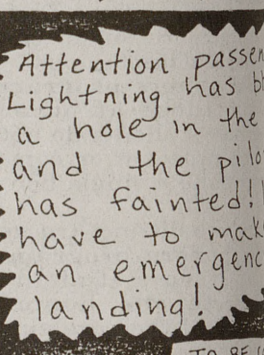 Attention passen
Lightning has b
a hole in the
and the pilo
has fainted!
have to mak
an emergenc
landing!
TO BE